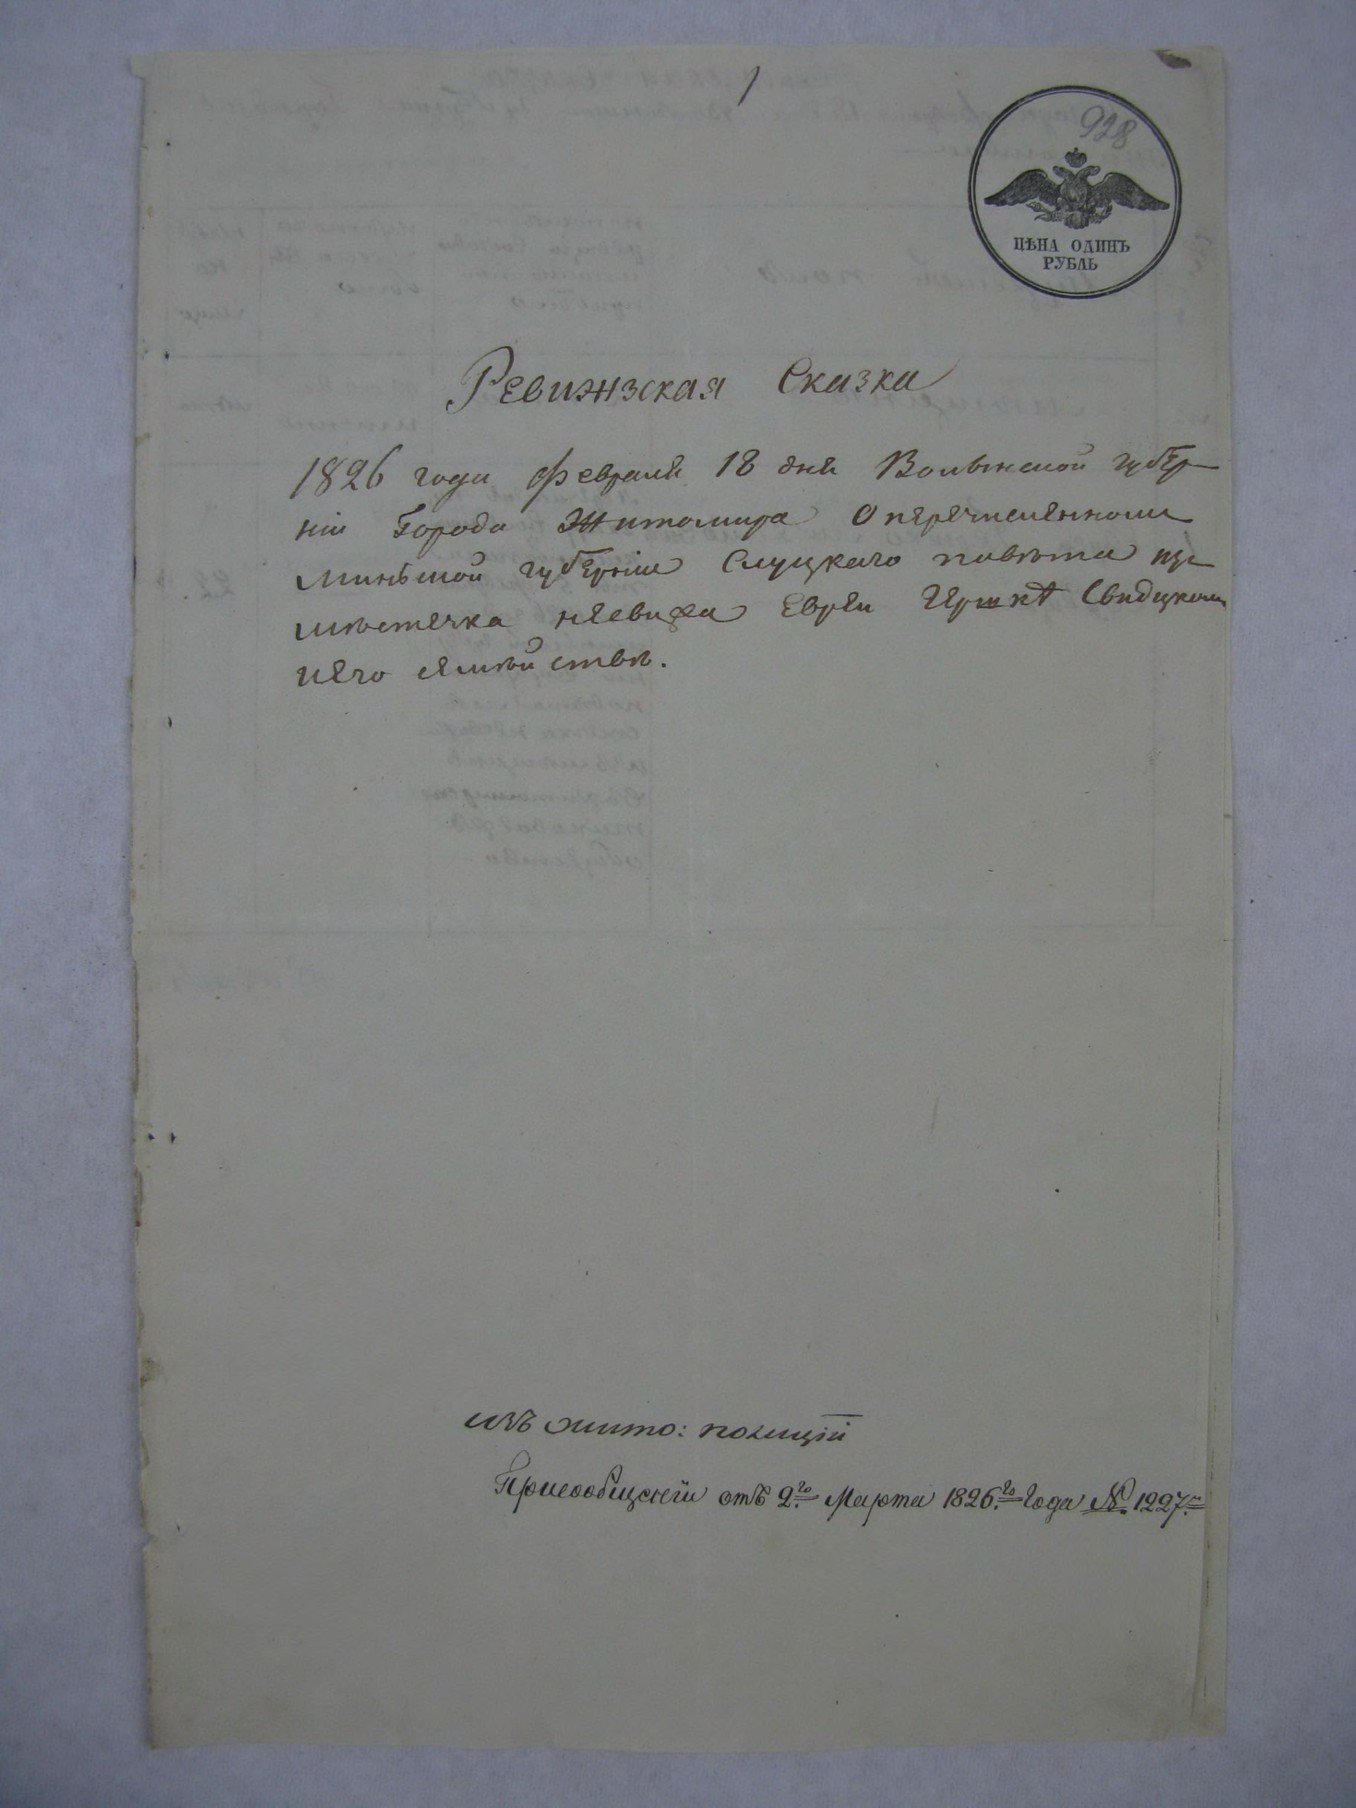 1
928
ЦѢНА ОДИНЪ
РУБЛЬ
Ревижзская Сказка
1826 года февраля 18 дня Волынской губер
нiи Города Житомира О перечисленномъ
минской губернiи Слуцкаго повѣта изъ
мѣстечка несвижа Еврей Гершкѣ Свидицкомъ
и его семѣйствѣ.
изъ жито: полицiи
При сообщенiи отъ 2го Марта 1826го Года №. 1227.